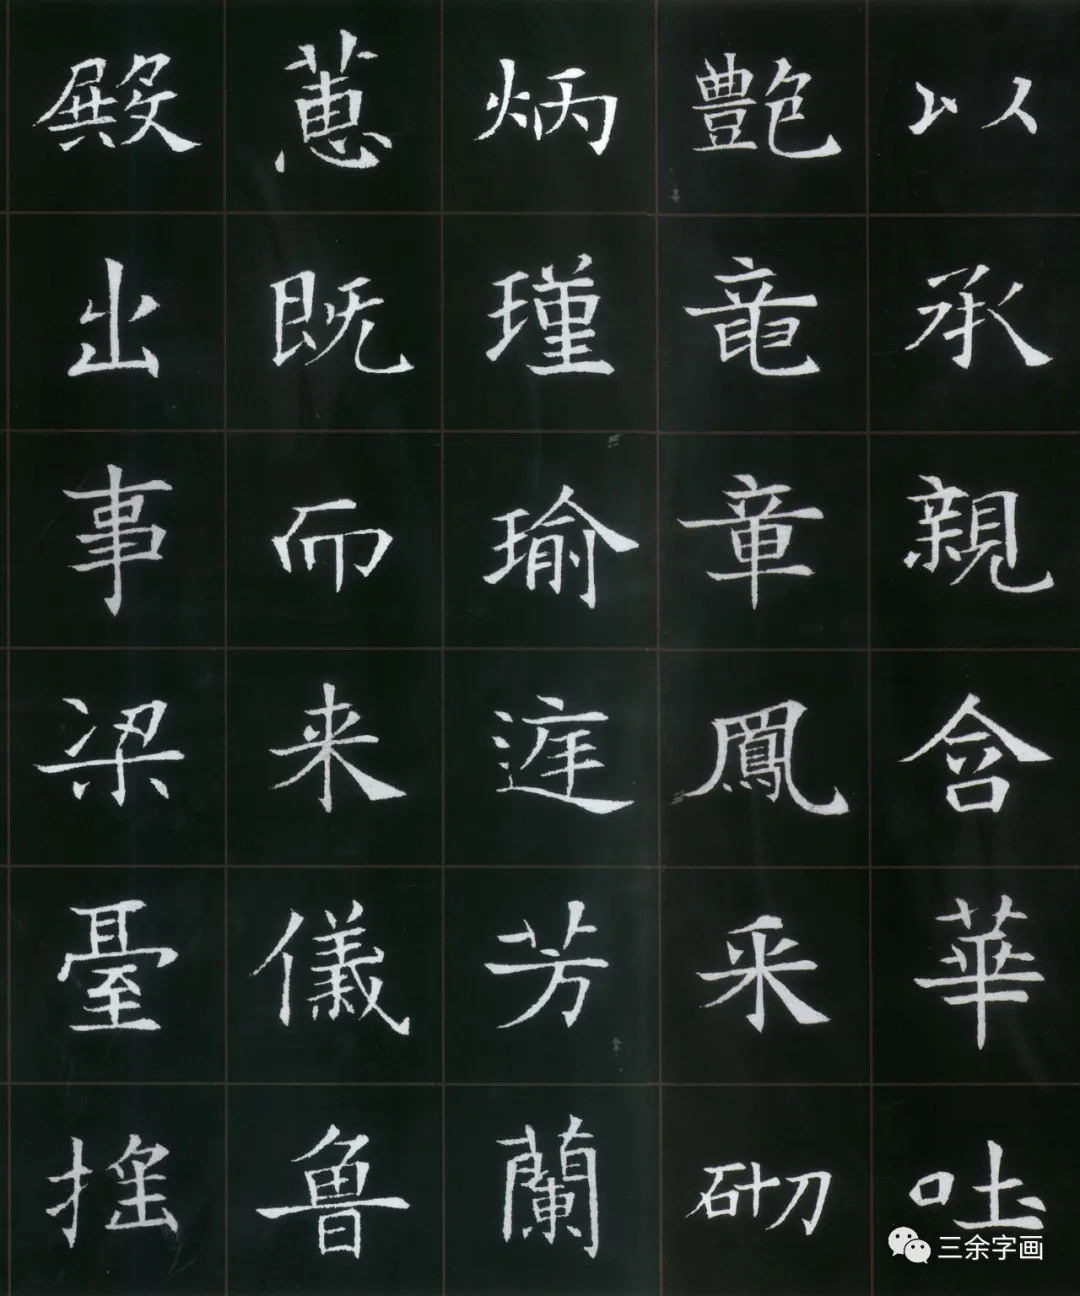 以承親含華吐
艶竜章鳳采砌
炳瑾瑜庭芳蘭
蕙既而来儀魯
殿出事梁臺搖
三余字画